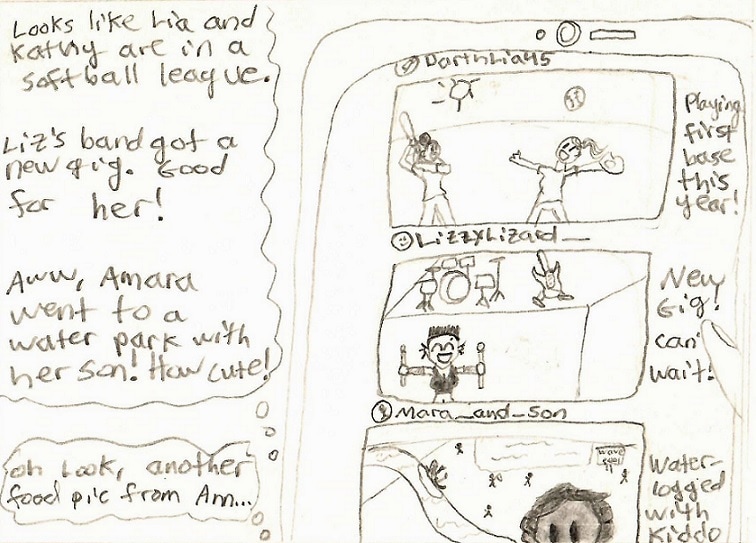 Looks like Lia and
Kathy are in a
softball league.
Liz's band got a
new gig. Good
for her!
Aww, Amara
went to a
water park with
her son! How cute!
Oh look, another
food pic from Am...
DarthLia45
Playing
first
base
this
year!
LizzyLizard_
New
Gig!
can'
wait!
Mara_and_Son
wave
pool
Water-
logged
with
Kiddo